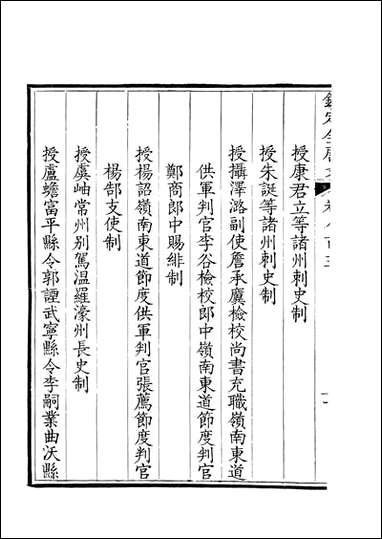 欽定全唐文 卷八百三
授康君立等諸州刺史制
授朱誕等諸州刺史制
授攝澤潞副使詹承廙檢校尚書充職嶺南東道
供軍判官李谷檢校郎中嶺南東道節度判官
鄭商郎中賜緋制
授楊詔嶺南東道節度供軍判官張薦節度判官
楊郜支使制
授虞岫常州別駕溫羅濠州長史制
授盧蟾富平縣令郭諲武寧縣令李嗣業曲沃縣